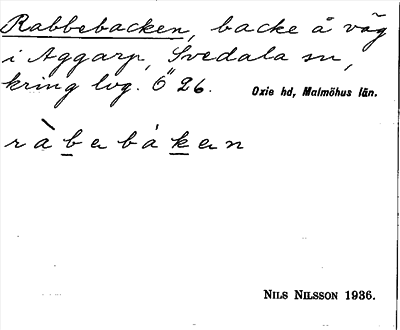 Rabbebacken, backe å väg
i Aggarp, Svedala sn,
kring lvg. Ö 26.
Oxie hd, Malmöhus län.
ràbebåken
NILS NILSSON 1936.